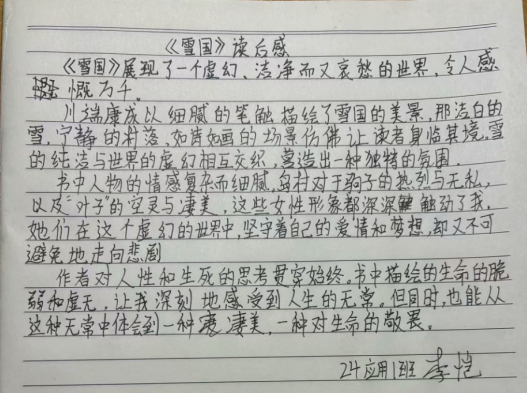 《雪国》读后感
《雪国》展现了一个虚幻、洁净而又哀愁的世界，令人感
慨万千。
川端康成以细腻的笔触描绘了雪国的美景，那洁白的
雪，宁静的村落，如诗如画的场景仿佛让读者身临其境，雪
的纯洁与世界的虚幻相互交织，营造出一种独特的氛围。
书中人物的情感复杂而细腻，岛村对于驹子的热烈与无私，
以及“叶子”的空灵与凄美，这些女性形象都深深触动了我，
她们在这个虚幻的世界中，坚守着自己的爱情和梦想，却又不可
避免地走向悲剧
作者对人性和生死的思考贯穿始终。书中描绘的生命的脆
弱和虚无，让我深刻地感受到人生的无常。但同时，也能从
这种无常中体会到一种凄美，一种对生命的敬畏。
24应用1班 李恺